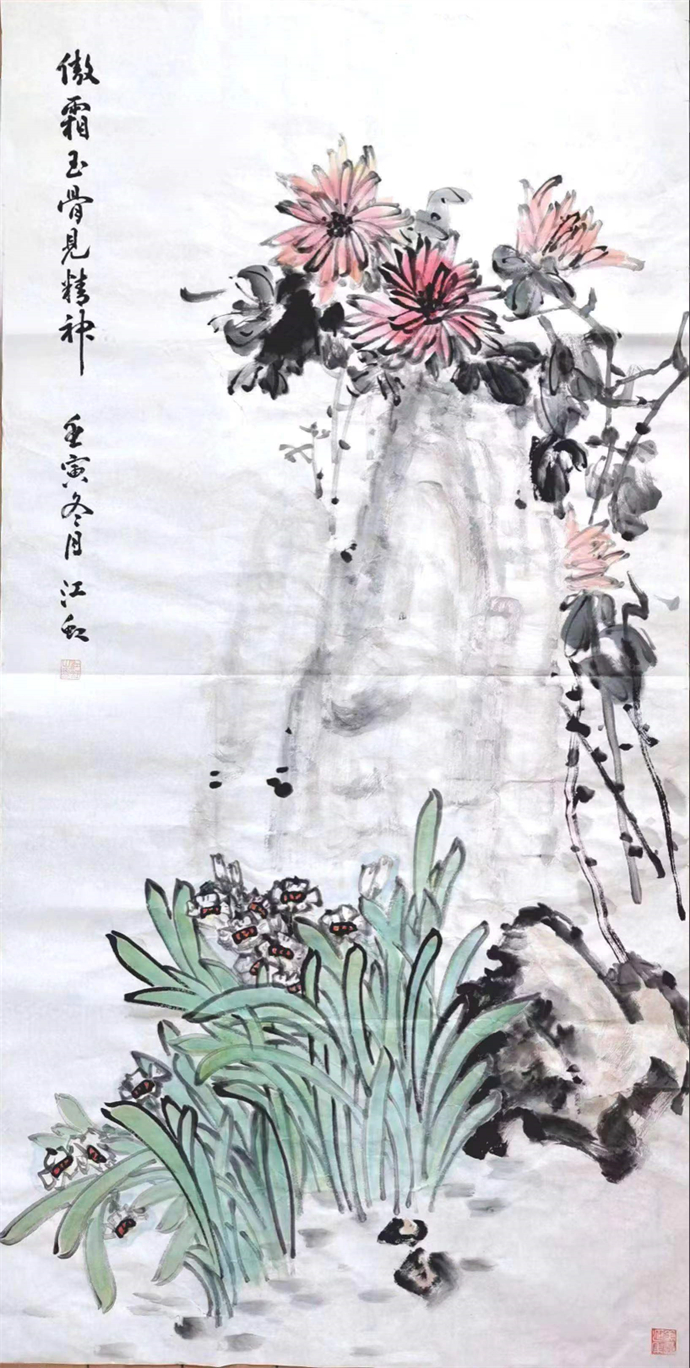 傲霜玉骨見精神
壬寅冬月 江虹